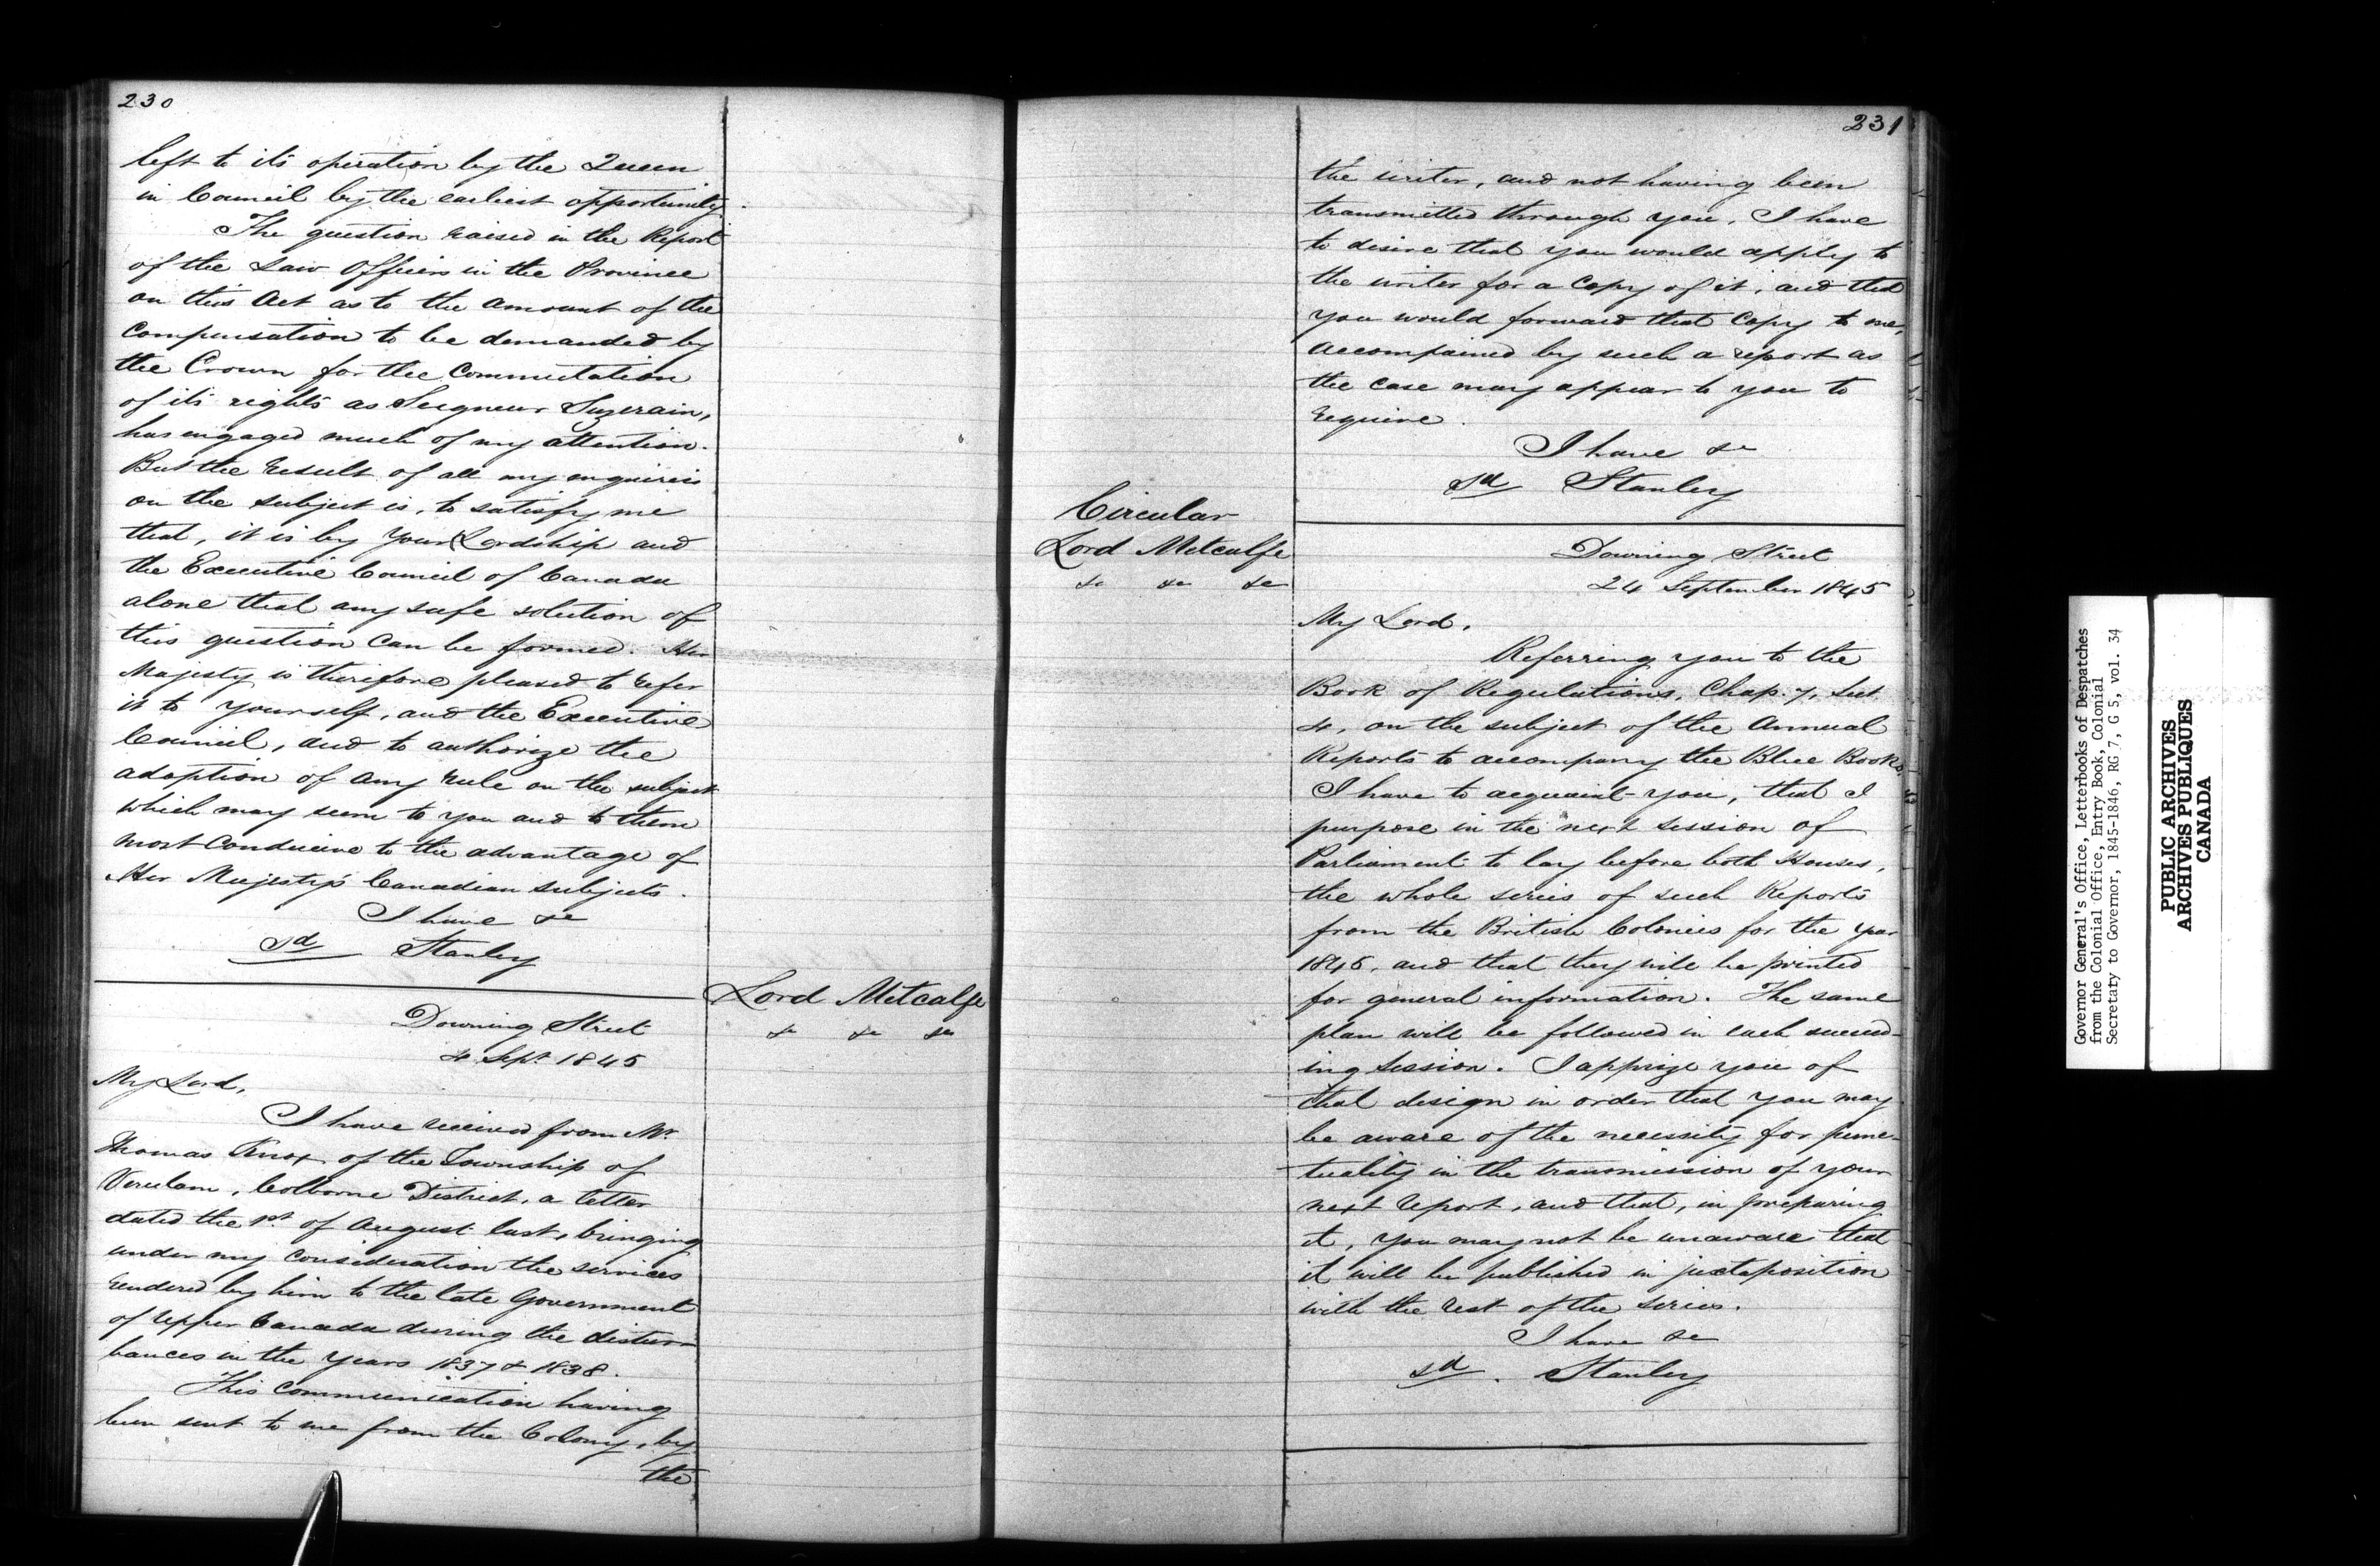 230
left to its operation by the Queen
in Council by the earliest opportunity.
The question raised in the Report
of the Law Officers in the Province
on this Act as to the amount of the
Compensation to be demanded by
the Crown for the Commutation
of its rights as Seigneur Suzerain,
has engaged much of my attention.
But the result of all my enquiries
on the subject is, to satisfy me
that, it is by Your Lordship and
the Executive Council of Canada
alone that any safe solution of
this question can be formed. Her
Majesty is therefore pleased to refer
it to yourself, and the Executive
Council, and to authorize the
adoption of any rule on the subject
which may seem to you and to them
most conducive to the advantage of
Her Majesty's Canadian subjects.
I have &c
sd Stanley
Lord Metcalfe
&c &c &c
Downing Street
4 Sept 1845
My Lord,
I have received from Mr
Thomas Knox of the Township of
Verulam, Colborne District, a letter
dated the 1st of August last, bringing
under my consideration the services
rendered by him to the late Government
of Upper Canada during the distur-
bances in the years 1837 & 1838.
This communication having
been sent to me from the Colony, by
the
231
the writer, and not having been
transmitted through you, I have
to desire that you would apply to
the writer for a Copy of it, and that
you would forward that Copy to me,
accompained by such a report as
the case may appear to you to
require.
I have &c
sd Stanley
Circular
Lord Metcalfe
&c &c &c
Downing Street
24 September 1845
My Lord,
Referring you to the
Book of Regulations, Chap. 7, Sect.
4, on the subject of the Annual
Reports to accompany the Blue Books,
I have to acquaint you, that I
purpose in the next session of
Parliament to lay before both Houses,
the whole series of such Reports
from the British Colonies for the year
1845, and that they will be printed
for general information. The same
plan will be followed in each succeed-
ing Session. I apprize you of
that design in order that you may
be aware of the necessity for punc-
tuality in the transmission of your
next report, and that, in preparing
it, you may not be unaware that
it will be published in juxtaposition
with the rest of the series.
I have &c
sd. Stanley
Governor General's Office, Letterbooks of Despatches
from the Colonial Office, Entry Book, Colonial
Secretary to Governor, 1845-1846, RG 7, G 5, vol. 34
PUBLIC ARCHIVES
ARCHIVES PUBLIQUES
CANADA